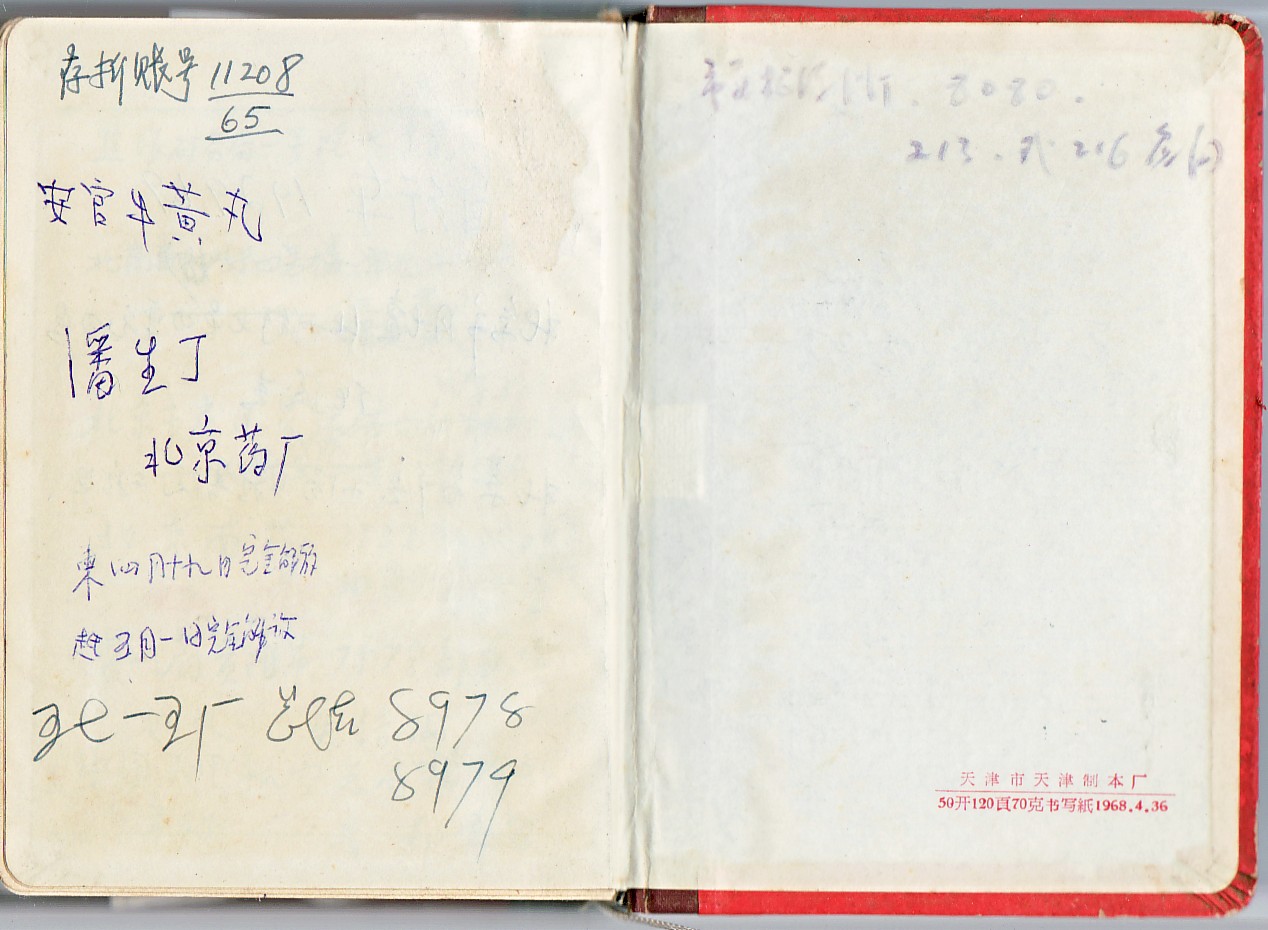 存折账号 11208
65
安宫牛黄丸
潘生丁
北京药厂
东四月十九日完全解放
赵五月一日完全解放
北一厂 总机 8978
8979
8080.
213.
天津市天津制本厂
50开120頁70克书写紙1968.4.36